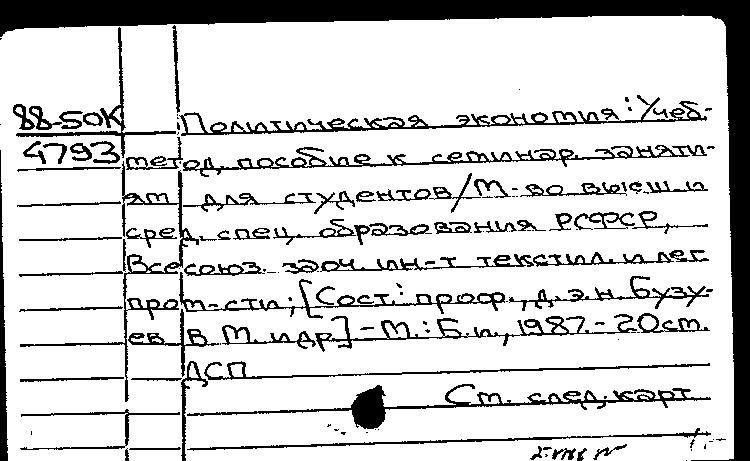 88-50К Политическая экономия: Учеб.-
4793 метод. пособие к семинар. заняти-
ям для студентов/М-во высш. и
сред. спец. образования РСФСР,
Всесоюз. заоч. ин-т текстил. и лег.
пром-сти; [Сост.: проф., д.э.н. Бузу-
ев В.М. и др.] - М.: Б.и., 1987. - 20см.
ДСП
См. след. карт.